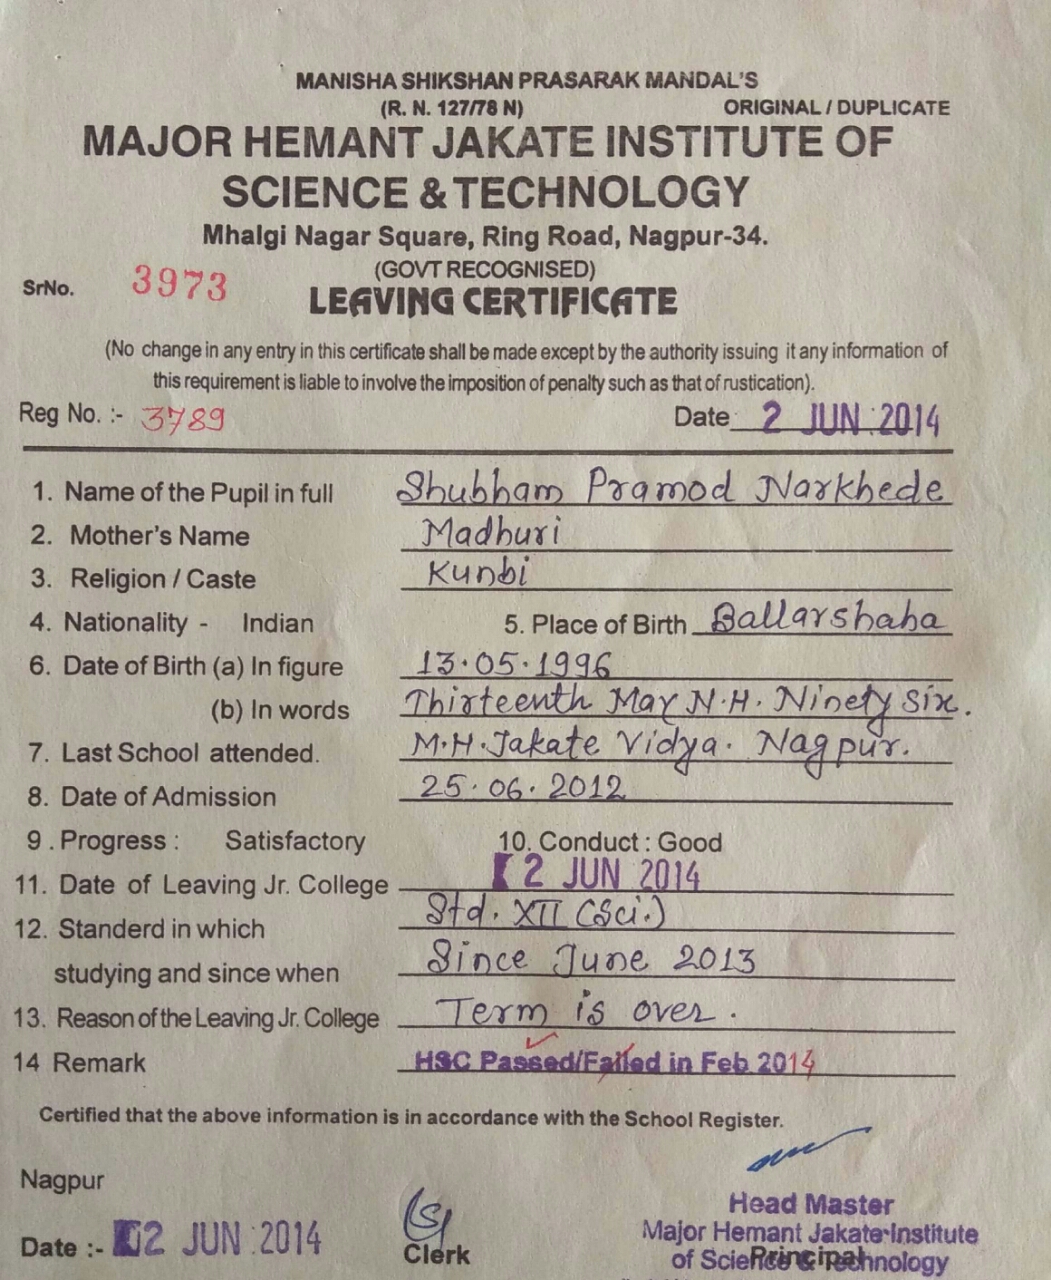 MANISHA SHIKSHAN PRASARAK MANDAL'S
(R. N. 127/78 N) ORIGINAL / DUPLICATE
MAJOR HEMANT JAKATE INSTITUTE OF
SCIENCE & TECHNOLOGY
Mhalgi Nagar Square, Ring Road, Nagpur-34.
(GOVT RECOGNISED)
SrNo. 3973 LEAVING CERTIFICATE
(No change in any entry in this certificate shall be made except by the authority issuing it any information of
this requirement is liable to involve the imposition of penalty such as that of rustication).
Reg No. :- 3789 Date 2 JUN 2014
1. Name of the Pupil in full Shubham Pramod Narkhede
2. Mother's Name Madhuri
3. Religion / Caste Kunbi
4. Nationality - Indian 5. Place of Birth Ballarshaha
6. Date of Birth (a) In figure 13.05.1996
(b) In words Thirteenth May N.H. Ninety Six.
7. Last School attended. M.H. Jakate Vidya. Nagpur.
8. Date of Admission 25.06.2012
9. Progress : Satisfactory 10. Conduct : Good
11. Date of Leaving Jr. College 2 JUN 2014
12. Standerd in which Std. XII (Sci.)
studying and since when Since June 2013
13. Reason of the Leaving Jr. College Term is over.
14 Remark HSC Passed/Failed in Feb 2014
Certified that the above information is in accordance with the School Register.
Nagpur
Head Master
Major Hemant Jakate Institute
Date :- 02 JUN 2014 Clerk of Science & Technology
Principal